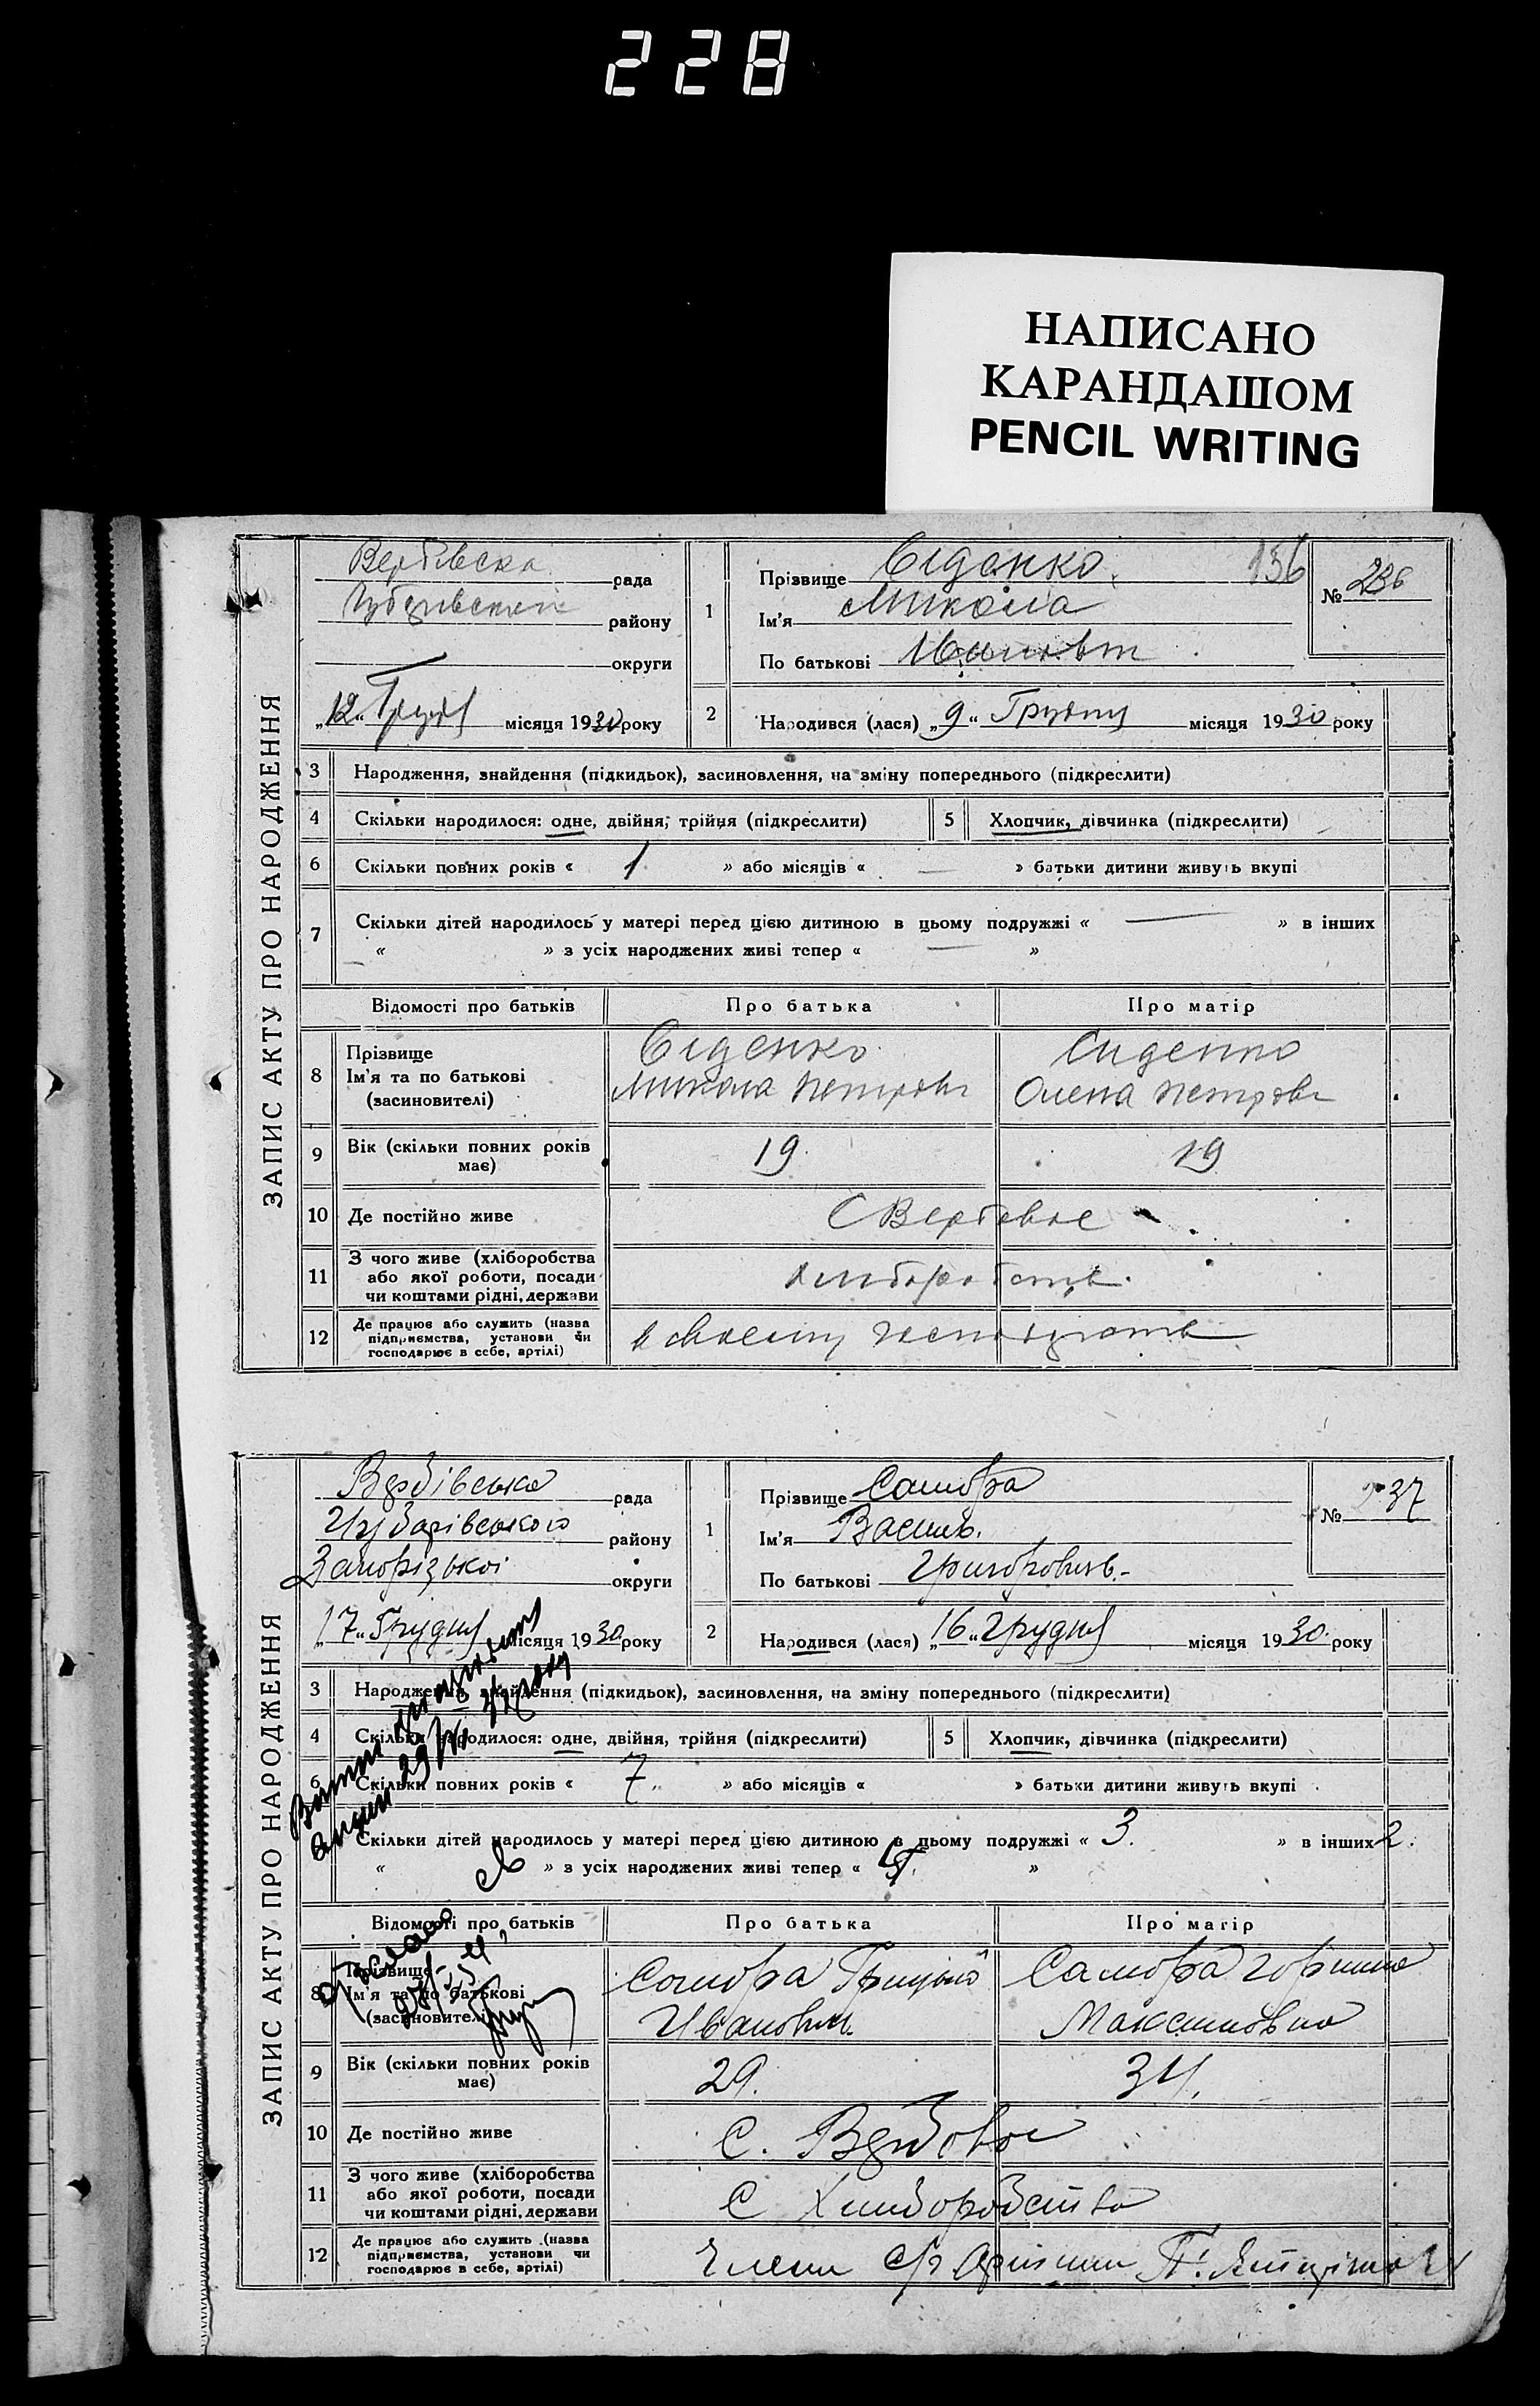 228
НАПИСАНО
КАРАНДАШОМ
PENCIL WRITING
ЗАПИС АКТУ ПРО НАРОДЖЕННЯ
Вербівська рада
району
округи
„12“ Грудня місяця 1930 року
1
Прізвище Сіденко
156
№ 236
Ім'я Микола
По батькові
2
Народився (лася) „9“ Грудня місяця 1930 року
3 Народження, знайдення (підкидьок), засиновлення, на зміну попереднього (підкреслити)
4 Скільки народилося: одне, двійня, трійня (підкреслити) 5 Хлопчик, дівчинка (підкреслити)
6 Скільки повних років « 1 » або місяців « — » батьки дитини живуть вкупі
7 Скільки дітей народилось у матері перед цією дитиною в цьому подружжі « — » в інших
« — » з усіх народжених живі тепер « — »
Відомості про батьків Про батька Про матір
8 Прізвище
Ім'я та по батькові
(засиновителі)
Сіденко
Микола Петрович
Сиденко
Олена Петровн
9 Вік (скільки повних років
має) 19 19
10 Де постійно живе С Вербове
11 З чого живе (хліборобства
або якої роботи, посади
чи коштами рідні, держави
хліборобств
12 Де працює або служить (назва
підприємства, установи чи
господарює в себе, артілі)
в своему господарств
ЗАПИС АКТУ ПРО НАРОДЖЕННЯ
Вербівська рада
Чубарівського району
Запорізької округи
„17“ Грудня місяця 1930 року
1
Прізвище Самофра
№ 237
Ім'я Василь.
По батькові Григорович.-
2
Народився (лася) „16“ Грудня місяця 1930 року
3 Народження, знайдення (підкидьок), засиновлення, на зміну попереднього (підкреслити)
4 Скільки народилося: одне, двійня, трійня (підкреслити) 5 Хлопчик, дівчинка (підкреслити)
6 Скільки повних років « 7 » або місяців « » батьки дитини живуть вкупі
Скільки дітей народилось у матері перед цією дитиною в цьому подружжі « 3. » в інших 2.
« » з усіх народжених живі тепер « 5. »
Відомості про батьків Про батька Про матір
8 Прізвище
Ім'я та по батькові
(засиновителі)
Іванович
Максимовна
9 Вік (скільки повних років
має) 29. 34.
10 Де постійно живе С. Вербове
11 З чого живе (хліборобства
або якої роботи, посади
чи коштами рідні, держави
С Хліборобства
12 Де працює або служить (назва
підприємства, установи чи
господарює в себе, артілі)
Члени с/г Артілі